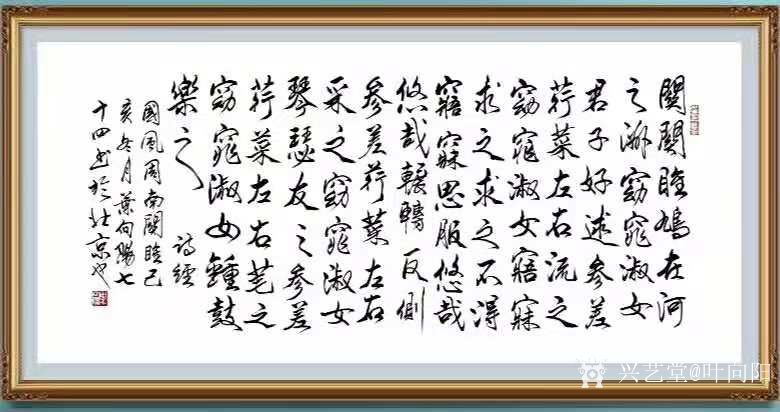 關關雎鳩在河
之洲窈窕淑女
君子好逑參差
荇菜左右流之
窈窕淑女寤寐
求之求之不得
寤寐思服悠哉
悠哉輾轉反側
參差荇菜左右
采之窈窕淑女
琴瑟友之參差
荇菜左右芼之
窈窕淑女鍾鼓
樂之 詩經
國風周南關雎己
亥冬月葉向陽七
十四书於北京也
兴艺堂@叶向阳